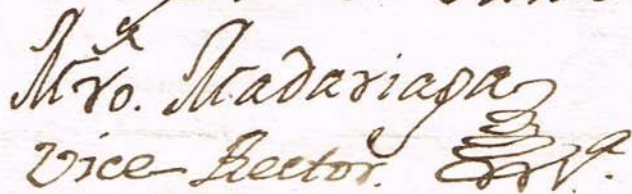 Mro. Madariaga
Vice Rector.